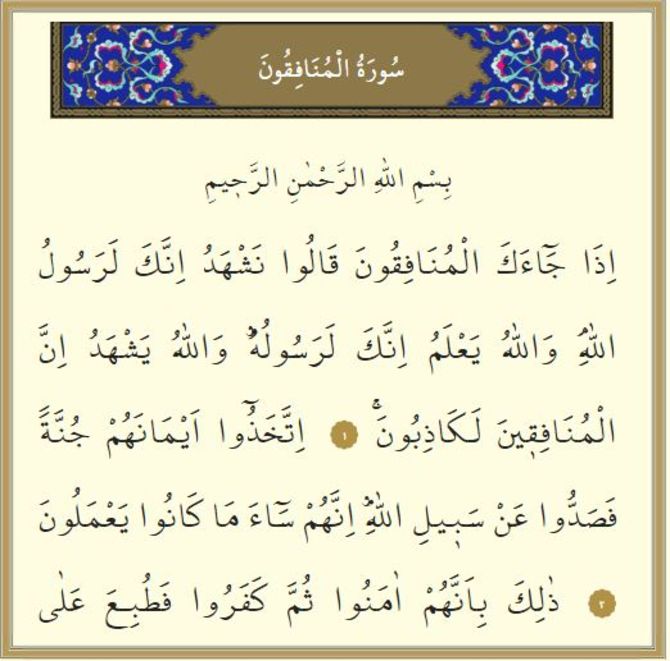 سُورَةُ الْمُنَافِقُونَ
بِسْمِ اللهِ الرَّحْمٰنِ الرَّحٖيمِ
اِذَا جَٓاءَكَ الْمُنَافِقُونَ قَالُوا نَشْهَدُ اِنَّكَ لَرَسُولُ
اللهِۢ وَاللهُ يَعْلَمُ اِنَّكَ لَرَسُولُهُۜ وَاللهُ يَشْهَدُ اِنَّ
الْمُنَافِقٖينَ لَكَاذِبُونَۚ ١ اِتَّخَذُٓوا اَيْمَانَهُمْ جُنَّةً
فَصَدُّوا عَنْ سَبٖيلِ اللهِۜ اِنَّهُمْ سَٓاءَ مَا كَانُوا يَعْمَلُونَ
٢ ذٰلِكَ بِاَنَّهُمْ اٰمَنُوا ثُمَّ كَفَرُوا فَطُبِعَ عَلٰى